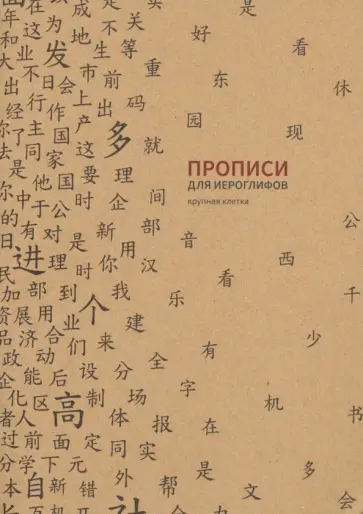 在 成 关 实 是
年 这 为 地 生 等 好 看
和 业 发 市 不 重 东 休
大 不 日 会 前
出 行 作 上 出 码 园 现
经 主 国 产 多 就
了 同 家 这 理
他 国 要 企 间
ПРОПИСИ
ДЛЯ ИЕРОГЛИФОВ
крупная клетка
你 中 于 公 时 部
的 有 对 是 用 音 公
日 进 理 时 新 汉 西
民 你 看
加 部 到 个 我 乐 千
资 展 用 业 建 少
品 济 合 们 来 全 有
政 动 设 分
企 能 后 制 场 字 机 书
化 区 高 体 报 在
者 人
过 前 面 定 同 实 是 多
分 学 下 元 外 帮 文 会
本 自 新 错